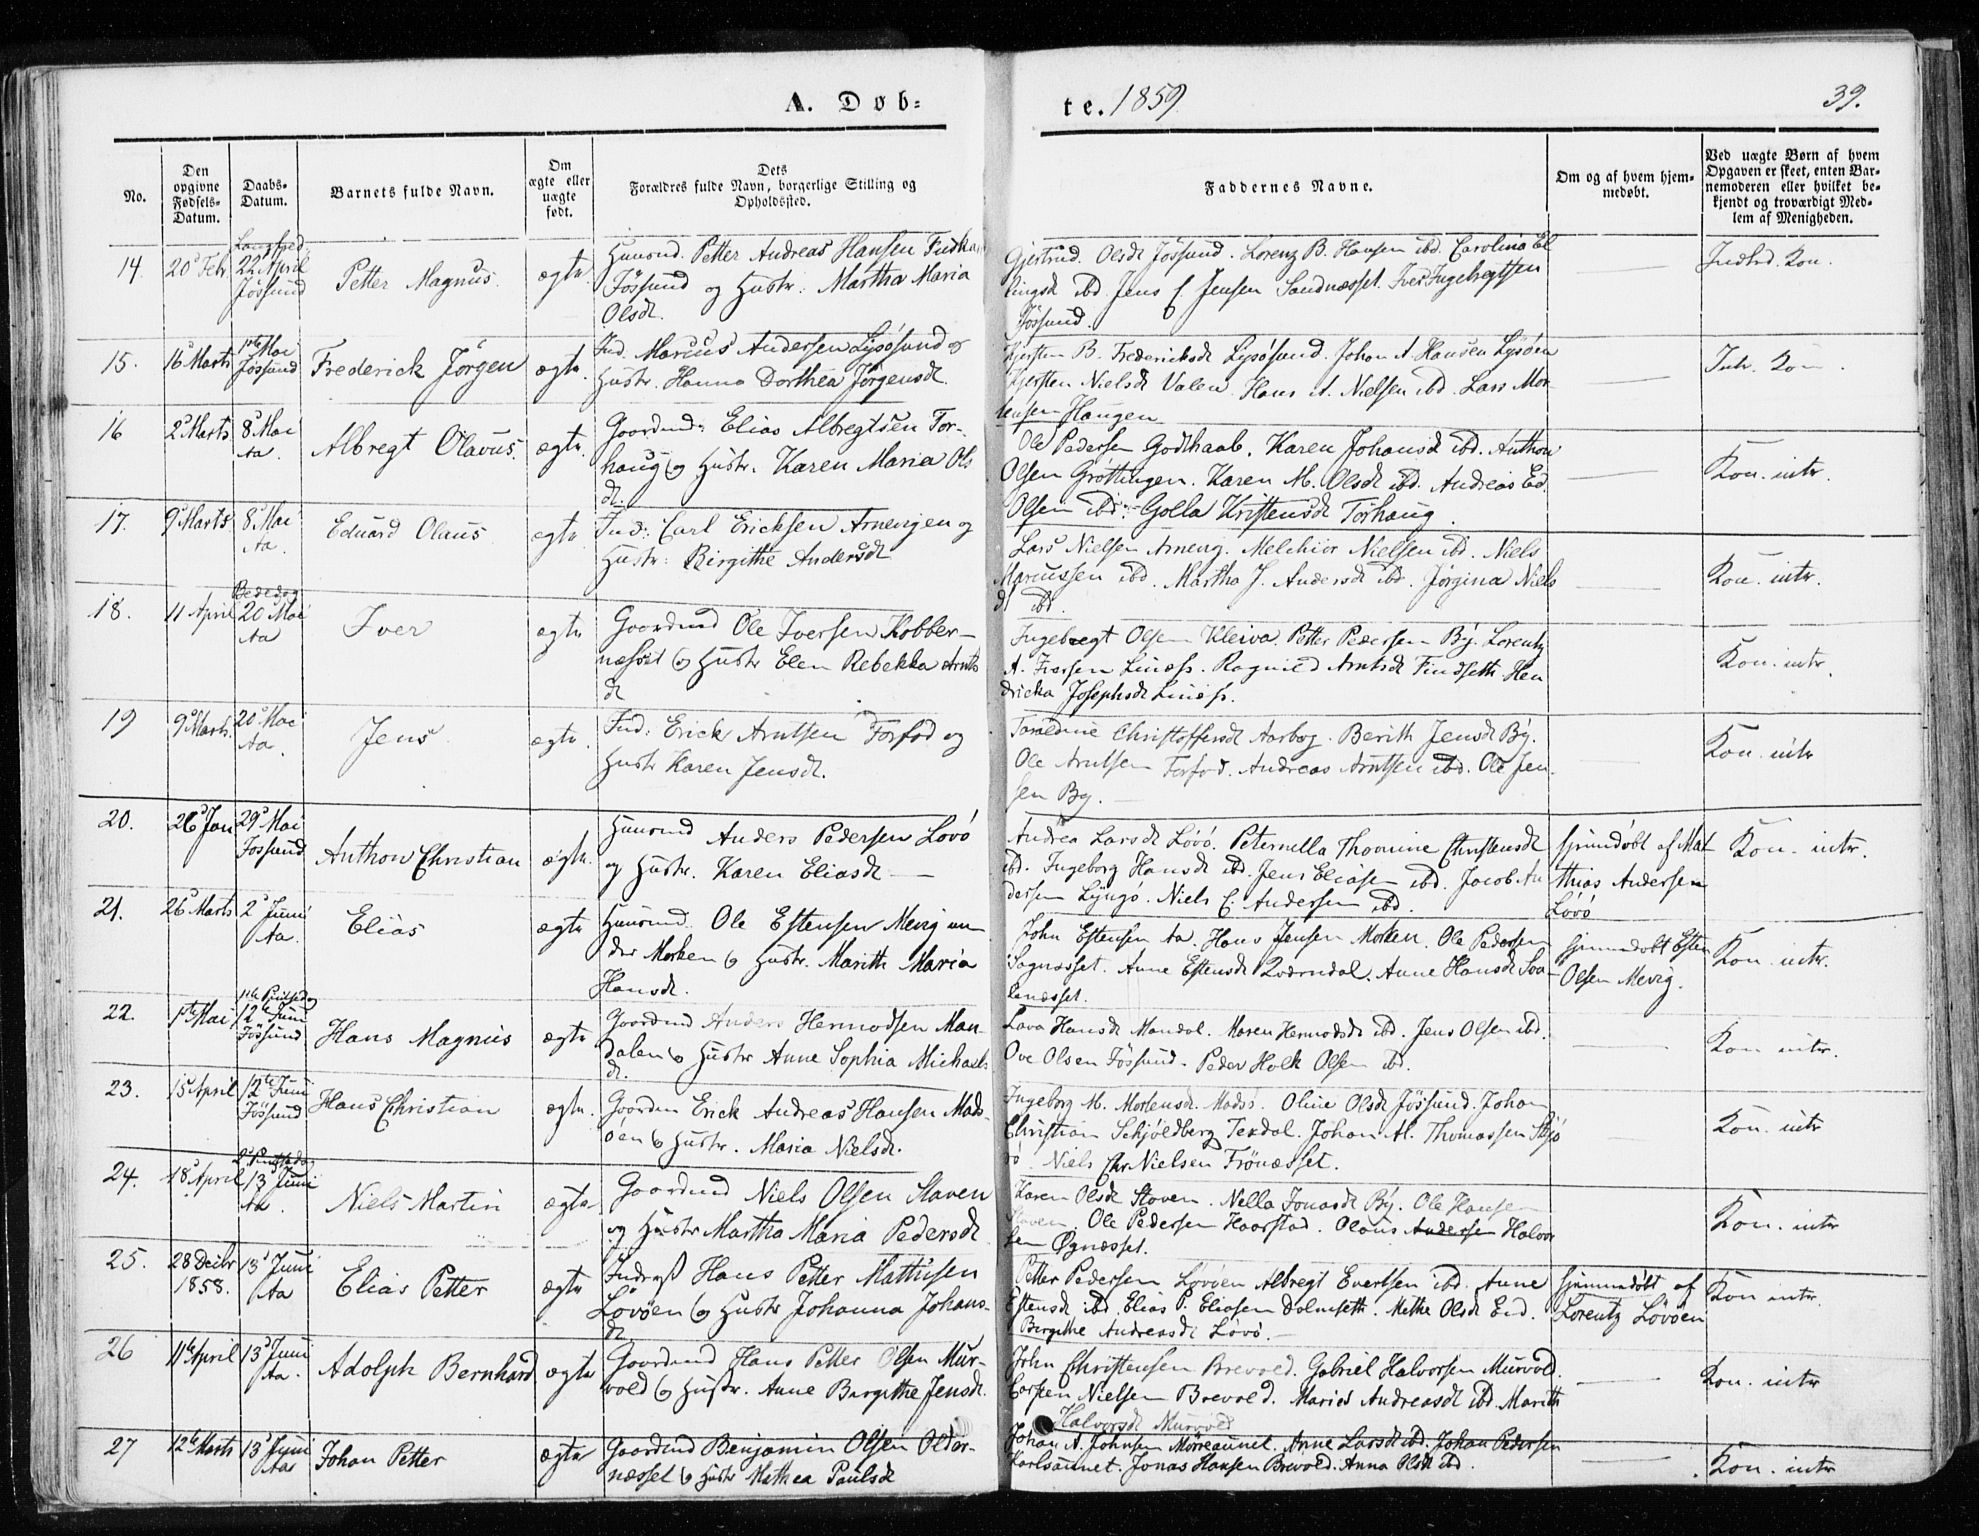 A. Døb=
te. 1859
39.
No.
Den opgivne Fødsels-Datum.
Daabs-Datum.
Barnets fulde Navn.
Om ægte eller uægte født.
Dets Forældres fulde Navn, borgerlige Stilling og Opholdssted.
Faddernes Navne.
Om og af hvem hjemmedøbt.
Ved uægte Børn af hvem Opgaven er skeet, enten Barnemoderen eller hvilket bekjendt og troværdigt Medlem af Menigheden.
14. 20 Febr 22 April Jössund Petter Magnus ægte Huusmd. Petter Andreas Hansen
Jössund og Hustr: Martha Maria
Olsdt.
Gjertrud Olsdt Jössund. Lorenz B. Hansen ibd. Carolina El
lingsdt ibd Jens C. Jensen Sandnæsset. Iver Ingebregtsen
Jössund.
15. 16 Marts 1ste Mai Jössund Frederick Jörgen ægte Ind. Marcus Andersen Lysösund og
Hustr. Hanna Dorthea Jörgensdt.
Kjersten B. Fredericksdt Lysösund. Johan A. Hansen Lysöen
Kjersten Nielsdt Valen. Hans A. Nielsen ibd. Lars Mor-
tensen Haugen
16 2 Marts 8 Mai Aa. Albregt Olavus. ægte Goordmd: Elias Albregtsen Tor-
haug og Hustr. Karen Maria Ols
dt.
Ole Pedersen Godthaab. Karen Johansdt ibd. Anthon
Olsen Gröttingen. Karen M. Olsdt ibd. Andreas Ed.
Olsen ibd. Golla Kristensdt Torhaug.
Kon. intr.
17. 9 Marts 8 Mai Aa. Eduard Olaus ægte Ind: Carl Ericksen Arnevigen og
Hustr: Birgithe Andersdt
Lars Nielsen Arnevig. Melchior Nielsen ibd. Niels
Marcussen ibd. Martha J. Andersdt ibd. Jörgina Niels
dt ibd.
Kon. intr.
18. 11 April Bededag 20 Mai Aa Iver ægte Goordmd Ole Iversen Kobber-
næsset og Hustr Elen Rebekka Arnts
dt
Ingebregt Olsen Kleiva. Petter Pedersen By. Lorentz
A. Iversen Linæss. Ragnild Arntsdt Findseth. Hen
dricka Josephsdt Linæss.
Kon. intr.
19 9 Marts. 20 Mai Aa. Jens ægte Ind: Erick Arntsen Forfod og
Hustr Karen Jensdt.
Christoffersdt Aarbog. Berith Jensdt By.
Ole Arntsen Forfod. Andreas Arntsen ibd. Ole Jen-
sen By.
Kon. intr
20. 26 Jan 29 Mai Jossund Anthon Christian ægte. Huusmd Anders Pedersen Lovö
og Hustr. Karen Eliasdt
Andrea Larsdt Lövö. Peternella Thomine Christensdt
ibd. Ingeborg Hansdt ibd. Jens Eliasen ibd. Jacob An
dersen Lyngö. Niels C. Andersen ibd.
hjemdöbt af Mat
thias Andersen
Lövö
Kon. intr.
21. 26 Marts 2 Juni Aa. Elias ægte Huusmd. Ole Estensen Mevig un
der Morken og Hustr. Marith Maria
Hansdt.
John Estensen Aa. Hans Jensen Morken. Ole Pedersen
Sagnæsset. Anne Estensdt Qværndal. Anne Hansdt Soa-
lenæsset.
hjemmedobt Esten
Olsen Mevig.
Kon. intr.
22. 1ste Mai 12te Juni Jössund Hans Magnus ægte Goordmd Anders Hermodsen Man-
dalen og Hustr Anne Sophia Michaels
dt.
Lava Hansdt Mandal. Maren Hermodsdt ibd. Jens Olsen ibd.
Ove Olsen Jössund. Peder Holk Olsen ibd.
Kon intr.
23. 15 April 12te Juni Jössund Hans Christian ægte. Goordm Erick Andreas Hansen Mads-
öen og Hustr. Maria Nielsdt.
Ingeborg M. Mortensdt Madsö. Oline Olsdt Jössund. Johan
Christian Schjöldberg Texdal. Johan M. Thomassen
Niels Chr Nielsen Frönæsset.
Kon. intr
24. 18 April 13 Juni Aa. Niels Martin ægte Goordmd Niels Olsen Staven
og Hustr Martha Maria Pedersdt
Karen Olsdt Stoven. Nella Jonasdt By. Ole Hansen
Stoven. Ole Pedersen Haarstad. Olaus Andersen Halvor
sen Øgnæsset.
Kon. intr
25. 28 Decbr 1858. 13 Juni Aa Elias Petter ægte Indræst Hans Petter Mathisen
Lövöen og Hustr Johanna Johans-
dt
Petter Pedersen Lövöen Albregt Evertsen ibd. Anne
Estensdt ibd. Elias P. Eliasen Dolmseth. Methe Olsdt Eid.
Bergithe Andreasdt Lövö.
hjemmedöbt af
Lorentz Lövöen
Kon intr
26 11te April 13 Juni Aa. Adolph Bernhard ægte Goordmd Hans Petter Olsen Mur-
vold og Hustr. Anne Birgithe Jensdt.
John Christensen Brevold. Gabriel Halvorsen Murvold.
Nielsen Brevold. Marie Andreasdt ibd. Marith
Halvorsdt Murvold
Kon. intr
27 12te Marts 13 Juni Aa Johan Petter ægte Goordmd Benjamin Olsen Older-
næsset og Hustr Mathea Paulsdt
Johan A. Johnsen Mörreaunet. Anne Larsdt ibd. Johan Pedersen
Karlsaunet. Jonas Hansen Brevold. Anna Olsdt ibd.
Kon. intr